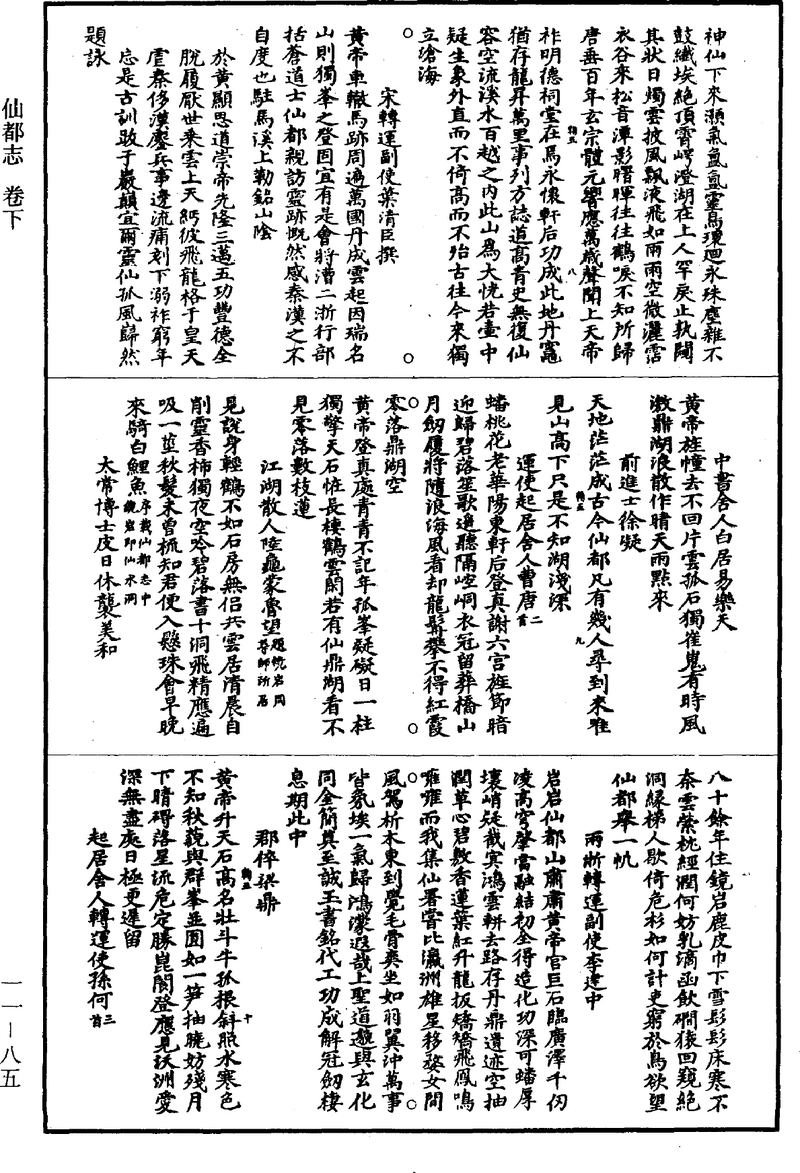 仙都志 卷下
神仙下來灝氣氳氳靈鳥環迴永殊塵雜不
鼓纖埃絕頂霄崿澄湖在上人罕戾止孰闚
其狀日燭雲披風飄液飛如雨雨空微灑霑
衣谷來松音潭影曙暉往往鶴唳不知所歸
唐垂百年玄宗體元響應萬歲聲聞上天帝
祚明德祠堂在焉永懷軒后功成此地丹竈
猶存龍昇萬里事列方誌道高青史無復仙
容空流溪水百越之內此山爲大恍若壺中
疑生象外直而不倚高而不殆古往今來獨
立滄海
宋轉運副使葉清臣撰
黃帝車轍馬跡周遍萬國丹成雲起因瑞名
山則獨峯之登固宜有是會將漕二浙行部
括蒼道士仙都親訪靈跡慨然感秦漢之不
自度也駐馬溪上勒銘山陰
於黃顯思道崇帝先隆三邁五功豐德全
脫履厭世乘雲上天矧彼飛龍格于皇天
虐秦侈漢鏖兵事邊流痛刻下溺祚窮年
忘是古訓敢于巖巔宜爾靈仙孤風歸然
題詠
中書舍人白居易樂天
黃帝旌幢去不回片雲孤石獨崔嵬有時風
激鼎湖浪散作晴天雨點來
前進士徐凝
天地茫茫成古今仙都凡有幾人尋到來唯
見山高下只是不知湖淺深
運使起居舍人曹唐二首
蟠桃花老華陽東軒后登真謝六宫旌節暗
迎歸碧落笙歌遥聽隔崆峒衣冠留葬橋山
月劒履將隨浪海風看却龍髯攀不得紅霞
零落鼎湖空
黃帝登真處青青不記年孤峯疑礙日一柱
獨擎天石怪長棲鶴雲閑若有仙鼎湖看不
見零落數枝蓮
江湖散人陸龜蒙魯望
見說身輕鶴不如石房無侶共雲居清晨自
削靈香柿獨夜空吟碧落書十洞飛精應遍
吸一莖秋髮未曾梳知君便入懸珠會早晚
來騎白鯉魚
太常博士皮日休襲美和
八十餘年住鏡岩鹿皮巾下雪髟髟床寒不
柰雲縈枕經潤何妨乳滴函飲澗猿回窺絕
洞緣梯人歇倚危杉如何計更窮於鳥欲望
仙都舉一帆
兩浙轉運副使李建中
岩岩仙都山肅肅黃帝宫巨石臨廣澤千仞
凌高穹肇當融結初全得造化功深可蟠厚
壤峭疑截冥鴻雲軿去路存丹鼎遺迹空抽
澗草心碧敷香蓮葉紅升龍扳矯矯飛鳳鳴
雍雍而我集仙署嘗比瀛洲雄星移婺女間
風駕析木東到覺毛骨爽坐如羽翼沖萬事
皆氛埃一氣歸鴻濛遐哉上聖道邈與玄化
同金簡奠至誠玉書銘代工功成解冠劒棲
息期此中
郡倅梁鼎
黃帝升天石高名壯斗牛孤根斜照水寒色
不知秋藐與群峯並圓如一笋抽晚妨殘月
下晴碍落星流危定勝崑閬登應見沃洲愛
深無盡處日極更遲留
起居舍人轉運使孫何三首
一一—八五